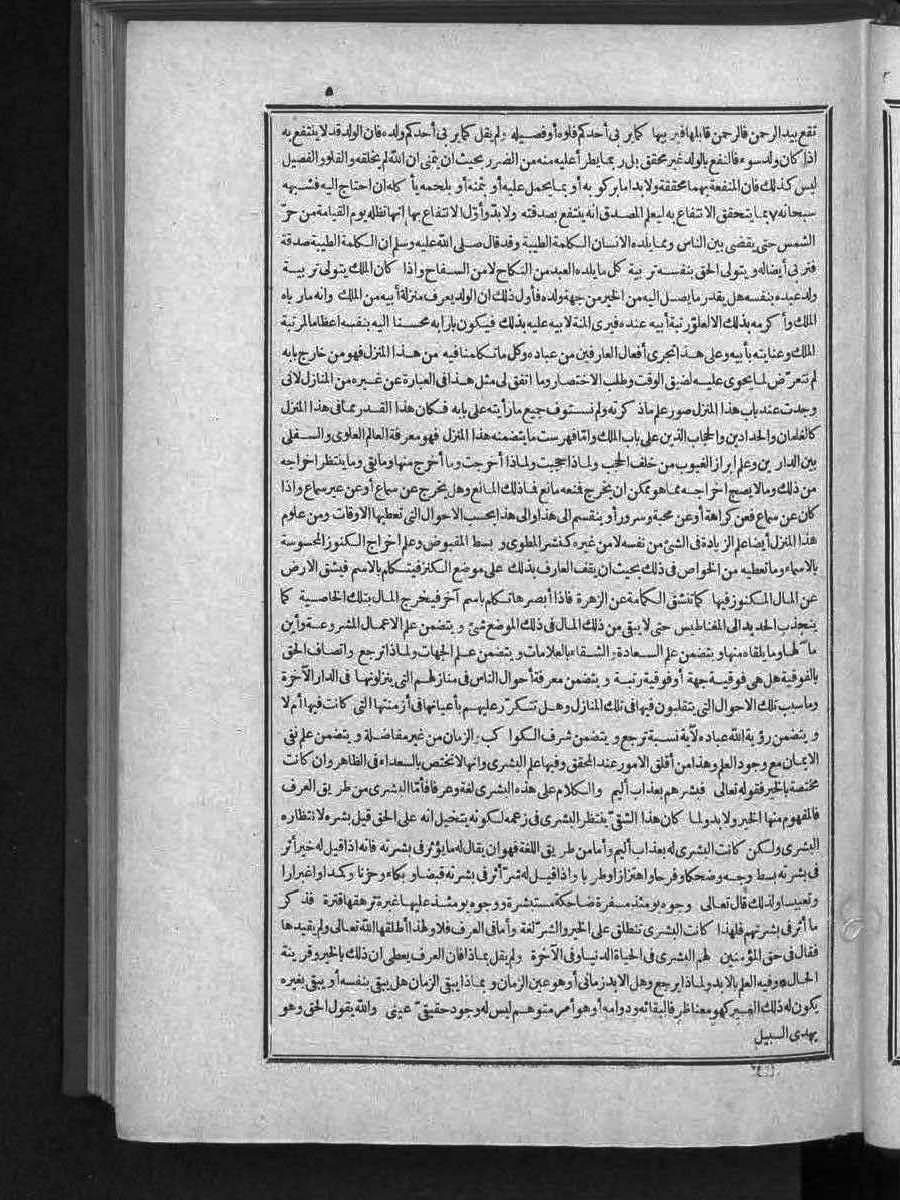 ٥
تقع بيد الرحمن فالرحمن قابلها فيربيها كما يربى أحدكم فلوه أو فصيله ولم يقل كما يربى أحدكم ولده فان الولد قد لا ينتفع به
اذا كان ولد سوء فالنفع بالولد غير محقق بل ربما يطرأ عليه منه من الضرر بحيث ان يتمنى ان الله لم يخلقه والفلو والفصيل
ليس كذلك فان المنفعة بهما محققة ولا بد اما بركوبه أو بما يحمل عليه أو بثمنه أو بلحمه يأكله ان احتاج اليه فشبهه
سبحانه بما يتحقق الانتفاع به ليعلم المصدق انه ينتفع بصدقته ولا بدّ وأوّل الانتفاع بها انها تظله يوم القيامة من حرّ
الشمس حتى يقضى بين الناس ومما يلده الانسان الكلمة الطيبة وقد قال صلى الله عليه وسلم ان الكلمة الطيبة صدقة
فتربى أيضا له ويتولى الحق بنفسه تربية كل ما يلده العبد من النكاح لا من السفاح واذا كان الملك يتولى تربية
ولد عبده بنفسه هل يقدر ما يصل اليه من الخير من جهة ولده فأول ذلك ان الولد يعرف منزلة أبيه من الملك وانه ما رباه
الملك وأكرمه بذلك الا لعلوّ رتبة أبيه عنده فيرى المنة لابيه عليه بذلك فيكون بارا به محسنا اليه بنفسه اعظاما لمرتبة
الملك وعنايته بأبيه وعلى هذا تجرى أفعال العارفين من عباده وكل ما تكلمنا فيه من هذا المنزل فهو من خارج بابه
لم نتعرّض لما يحوى عليه لضيق الوقت وطلب الاختصار وما اتفق لى مثل هذا فى العبارة عن غيره من المنازل لانى
وجدت عند باب هذا المنزل صور علم ما ذكرته ولم نستوف جميع ما رأيته على بابه فكان هذا القدر مما فى هذا المنزل
كالغلمان والحدادين والحجاب الذين على باب الملك وامّا فهرست ما يتضمنه هذا المنزل فهو معرفة العالم العلوى والسفلى
بين الدارين وعلم ابراز الغيوب من خلف الحجب ولماذا حجبت ولماذا أخرجت وما أخرج منها وما بقى وما ينتظر اخراجه
من ذلك وما لا يصح اخراجه مما هو ممكن ان يخرج فمنعه مانع فما ذلك المانع وهل يخرج عن سماع أو عن غير سماع واذا
كان عن سماع فعن كراهة أو عن محبة وسرور أو ينقسم الى هذا والى هذا بحسب الاحوال التى تعطيها الاوقات ومن علوم
هذا المنزل أيضا علم الزيادة فى الشئ من نفسه لا من غيره كنشر المطوى وبسط المقبوض وعلم اخراج الكنوز المحسوسة
بالاسماء وما تعطيه من الخواص فى ذلك بحيث ان يقف العارف بذلك على موضع الكنز فيتكلم بالاسم فيشق الارض
عن المال المكنوز فيها كما تنشق الكمامة عن الزهرة فاذا أبصرها تكلم باسم آخر فيخرج المال بتلك الخاصية كما
ينجذب الحديد الى المغناطيس حتى لا يبقى من ذلك المال فى ذلك الموضع شئ ويتضمن علم الاعمال المشروعة وأين
مآ لها وما يلقاه منها ويتضمن علم السعادة والشقاء بالعلامات ويتضمن علم الجهات ولماذا ترجع واتصاف الحق
بالفوقية هل هى فوقية جهة أو فوقية رتبة ويتضمن معرفة أحوال الناس فى منازلهم التى ينزلونها فى الدار الآخرة
وما سبب تلك الاحوال التى يتقلبون فيها فى تلك المنازل وهل تتكرّر عليهم بأعيانها فى أزمنتها التى كانت فيها أم لا
ويتضمن رؤية الله عباده لأية نسبة ترجع ويتضمن شرف الكواكب والزمان من غير مفاضلة ويتضمن علم نفى
الايمان مع وجود العلم وهذا من أقلق الامور عند المحقق وفيها علم البشرى وانها لا تختص بالسعداء فى الظاهر وان كانت
مختصة بالخير فقوله تعالى فبشرهم بعذاب أليم والكلام على هذه البشرى لغة وعرفا فأمّا البشرى من طريق العرف
فالمفهوم منها الخير ولا بد ولما كان هذا الشقىّ ينتظر البشرى فى زعمه لكونه يتخيل انه على الحق قيل بشره لانتظاره
البشرى ولكن كانت البشرى له بعذاب أليم وأما من طريق اللغة فهو ان يقال له ما يؤثر فى بشرته فانه اذا قيل له خير أثر
فى بشرته بسط وجه وضحكا وفرحا واهتزازا وطربا واذا قيل له شرّ أثر فى بشرته قبضا وبكاء وحزنا وكمدا واغبرارا
وتعبيسا ولذلك قال تعالى وجوه يومئذ مسفرة ضاحكة مستبشرة ووجوه يومئذ عليها غبرة ترهقها قترة فذكر
ما أثر فى بشرتهم فلهذا كانت البشرى تنطلق على الخير والشرّ لغة وأما فى العرف فلا ولهذا أطلقها الله تعالى ولم يقيدها
فقال فى حق المؤمنين لهم البشرى فى الحياة الدنيا وفى الآخرة ولم يقل بماذا فان العرف يعطى ان ذلك بالخير وقرينة
الحال وفيه العلم بالابد ولماذا يرجع وهل الابد زمانى أو هو عين الزمان وبماذا يبقى الزمان هل يبقى بنفسه أو يبقى بغيره
يكون له ذلك الغير كهو معنا ظرفا لبقائه ودوامه أو هو أمر متوهم ليس له وجود حقيقىّ عينى والله يقول الحق وهو
يهدى السبيل